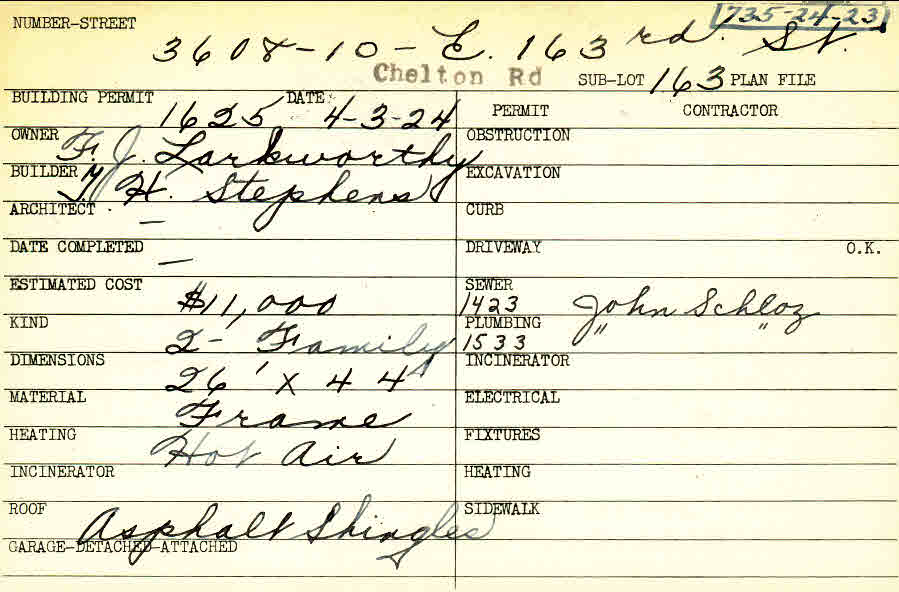 735-24-23
NUMBER-STREET 3608-10-E. 163rd. St.
Chelton Rd SUB-LOT 163 PLAN FILE
BUILDING PERMIT 1625 DATE 4-3-24 PERMIT CONTRACTOR
OWNER F. J. Larkworthy OBSTRUCTION
BUILDER H. Stephens EXCAVATION
ARCHITECT — CURB
DATE COMPLETED — DRIVEWAY O.K.
ESTIMATED COST $11,000 SEWER 1423 John Schloz
KIND 2-Family PLUMBING 1533 " "
DIMENSIONS 26' X 44' INCINERATOR
MATERIAL Frame ELECTRICAL
HEATING Hot Air FIXTURES
INCINERATOR HEATING
ROOF Asphalt Shingles SIDEWALK
GARAGE-DETACHED-ATTACHED